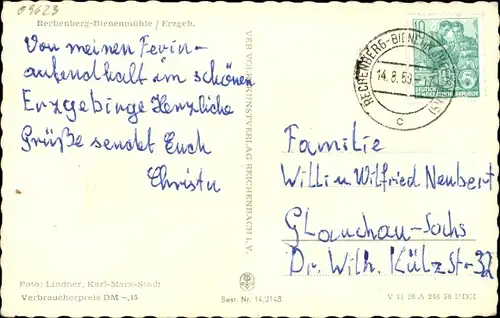 09623
Rechenberg-Bienenmühle / Erzgeb.
Von meinen Ferien-
aufendhalt im schönen
Erzgebirge Herzliche
Grüße sendet Euch
Christa
VEB VOLKSKUNSTVERLAG REICHENBACH I. V.
RECHENBERG-BIENENMÜHLE
14.8.58
c
10
DEUTSCHE
DEMOKRATISCHE REPUBLIK
Familie
Willi u Wilfried Neubert
Glauchau-Sachs
Dr. Wilh. Külz Str-32
Foto: Lindner, Karl-Marx-Stadt
Verbraucherpreis DM -,15
Best. Nr. 14/2148
V 11 28 A 246 58 DDR